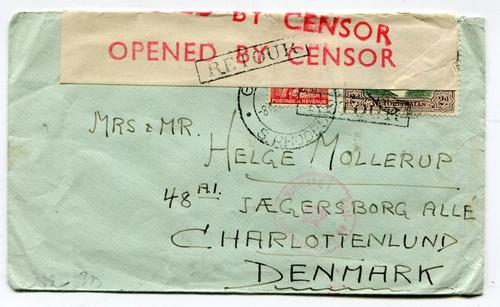 BY CENSOR
OPENED BY CENSOR
RETOUR
POSTAGE & REVENUE
2d
S. RHODESIA
RETOUR
MRS & MR.
HELGE MOLLERUP
48 A1.
JÆGERSBORG ALLÉ
CHARLOTTENLUND
DENMARK